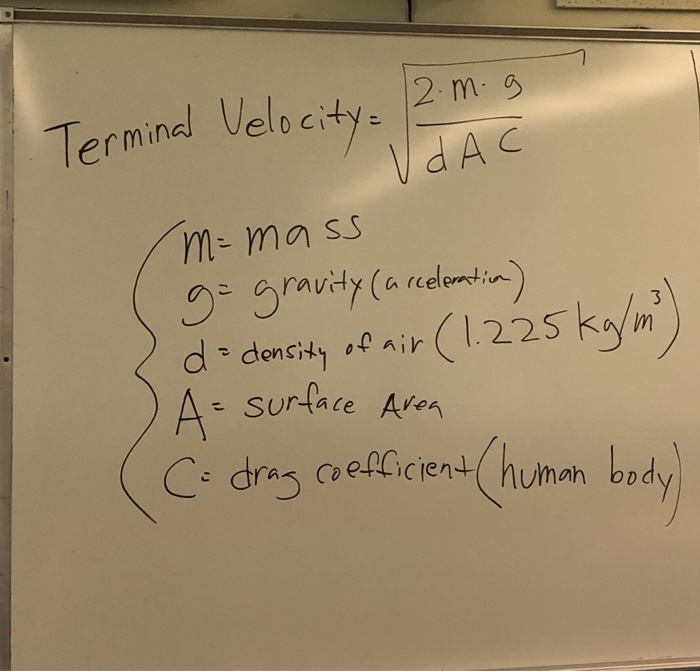 Terminal Velocity = √(2·m·g / dAC)
m = mass
g = gravity (acceleration)
d = density of air (1.225 kg/m³)
A = surface Area
C = drag coefficient (human body)